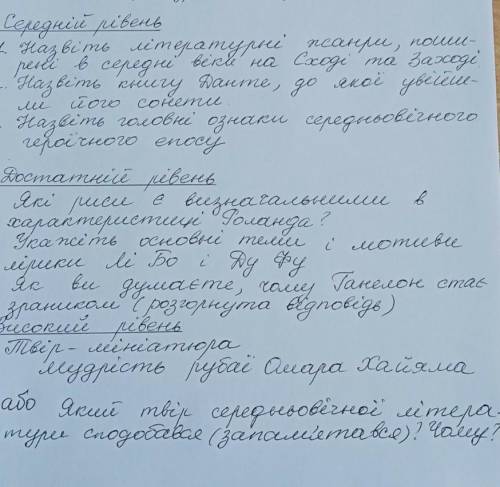 Середній рівень
1. Назвіть літературні жанри, поши-
рені в середні віки на Сході та Заході
. Назвіть книгу Данте, до якої увійш-
ли його сонети
. Назвіть головні ознаки середньовічного
героїчного епосу
Достатній рівень
Які риси є визначальними в
характеристиці Роланда?
Укажіть основні теми і мотиви
лірики Лі Бо і Ду Фу
Як ви думаєте, чому Ганелон стає
зрадником (розгорнута відповідь)
Високий рівень
Твір-мініатюра
Мудрість рубаї Омара Хайяма
або Який твір середньовічної літера-
тури сподобався (запам'ятався)? Чому?